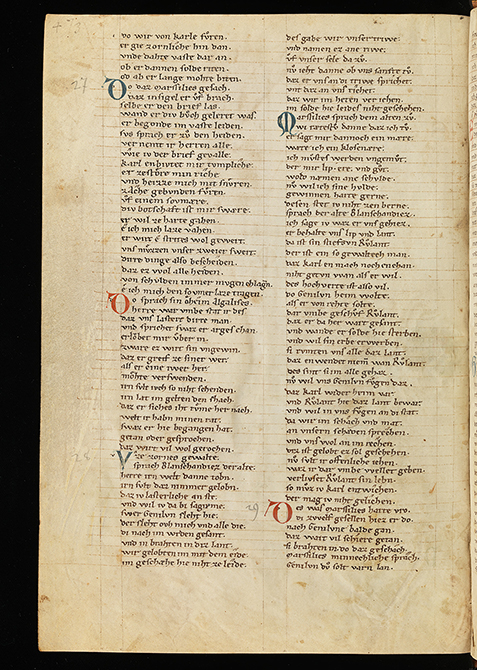 wo wir von karle fvren.
er gie zornliche hin dan.
vnde dahte vaste dar an.
ob er dannen solde riten.
od ob er lange mohte biten.
Do daz marssilies gesach.
daz insigel er vf brach.
selbe er den brief las.
wand er div bvch geleret was.
er begonde im vaste leiden.
svs sprach er zv den heiden.
nv nemt ir herren alle.
wie iv der brief gevalle.
karl enbivtet mir
er zestore min riche
vnd heizze mich mit snvren.
gebunden fvren.
vf einem sovmære.
div botschaft ist mir swære.
er wil ze harte gahen.
e ich mich laze vahen.
er wirt e strites wol gewert.
vns mvzzen vnser zweier swert.
dirre dinge also bescheiden.
daz ez wol alle heiden.
von schvlden immer mvgen chlagn.
e ich mich den sovmer laze tragen.
Do sprach sin oheim algalifes.
herre war vmbe stat ir des
daz vns lasters bitte man.
vnd sprichet swaz er arges chan.
erlobet mir vber in.
zware ez wirt sin vngewin.
daz er greif ze siner wer.
als er eine zwei her.
mohte verswenden.
irn svlt iveh so niht schenden.
irn lat im gelten den slach.
daz er siches iht rvme her nach.
welt ir habn minen rat.
swaz er hie begangen hat.
getan oder gesprochen.
daz wirt vil wol gerochen.
Vz zornes gewalte.
sprach Blanschandiez der alte.
herre irn welt danne tobn.
irn svlt daz nimmer gelobn.
daz iv lasterliche an ste.
vnd wil iv da bi sagn me.
swer Genelvn sleht hie.
der sleht ovh mich vnd alle die.
di nach im wrden gesant.
vnd in brahten in diz lant.
wir gelobten im mit dem eide.
im geschæhe hie niht ze leide.
des gabe wir vnser triwe.
vnd namen ez ane riwe.
vf vnser sele da zv.
nv seht danne ob vns sanfte tv.
daz er vns an di triwe sprichet.
vnt daz an vns richet.
daz wir im heten veriehen.
im solde hie leides niht geschehen.
Marssilies sprach dem alten zv.
wi rætestv danne daz ich tv.
er sagt mir dannoch ein mære.
wære ich ein klosenære.
ich mvste werden vngemvt.
der mir lip. ere. vnd gvt.
wold nemen ane schvlde.
nv wil ich sine hvlde.
gewinnen harte gerne.
desen stet iv niht ze enberne.
sprach der alte Blanschandiez.
ich sage iv waz er vns gehiez.
er behalte vns lip vnd lant.
da ist sin stiefsvn Rvlant.
der ist ein so gewaltech man.
daz karl en mach noch enchan.
niht getvn wan als er wil.
des hochverte ist also vil.
do Genelvn heim wolte.
als er von rehte solte.
dar vmbe geschvf Rvlant.
daz er da her wart gesant.
vnd wande er solde hie sterben.
vnd wil sin erbe erwerben.
si rvmten vns alle daz lant.
daz en wendet niemn wan Rvlant.
des sint si im alle gehaz.
nv wil vns Genelvn fvgen daz.
daz karl wider heim var.
vnd Rvlant hie daz lant bewar.
vnd wil in vns fvgen an di stat.
da wir im schach vnd mat.
an vnsern schaden sprechen.
vnd vns wol an im rechen.
des ist gelobt ez sol geschehen.
nv svlt ir offenliche iehen.
waz ir dar vmbe welleт geben.
verlivset Rvlant sin lebn.
so mvz iv karl entwichen.
der mag iv niht gelichen.
Des was marssilies harte vro.
di zwelf gesellen hiez er do.
nach Genelvne balde gan.
daz wart vil schiere getan.
si brahten in. do daz geschach.
marssilies minnechliche sprach.
Genelvn dv solt warn lan.